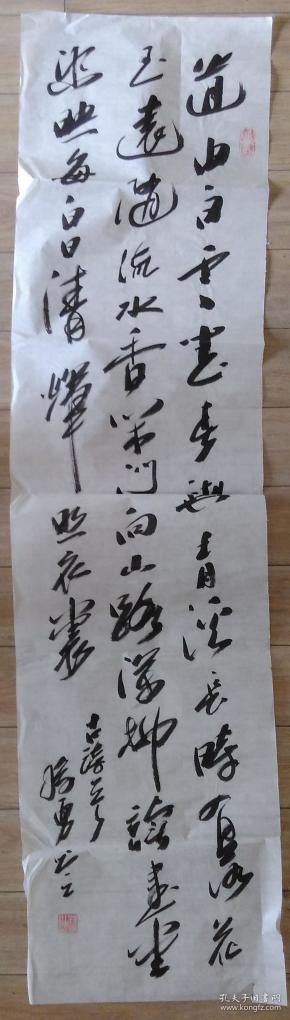 道由白雲盡春與青溪長時有落花
至遠隨流水香閑門向山路深柳讀書堂
幽映每白日清輝照衣裳
古詩
勇
孔夫子旧书网